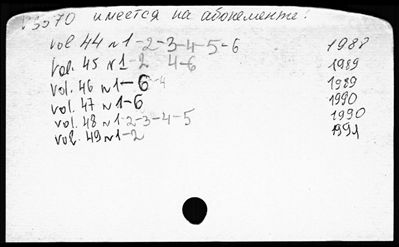 имеется на абонементе:
vol 44 N1-2-3-4-5-6 1988
vol. 45 N1-2 4-6 1989
vol. 46 N1-6 1989
vol. 47 N1-6 1990
vol. 48 N1-2-3-4-5 1990
vol. 49 N1-2 1991